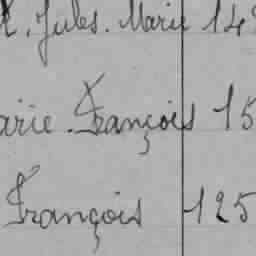 Jules. Marie 14
arie. François 15
François 125